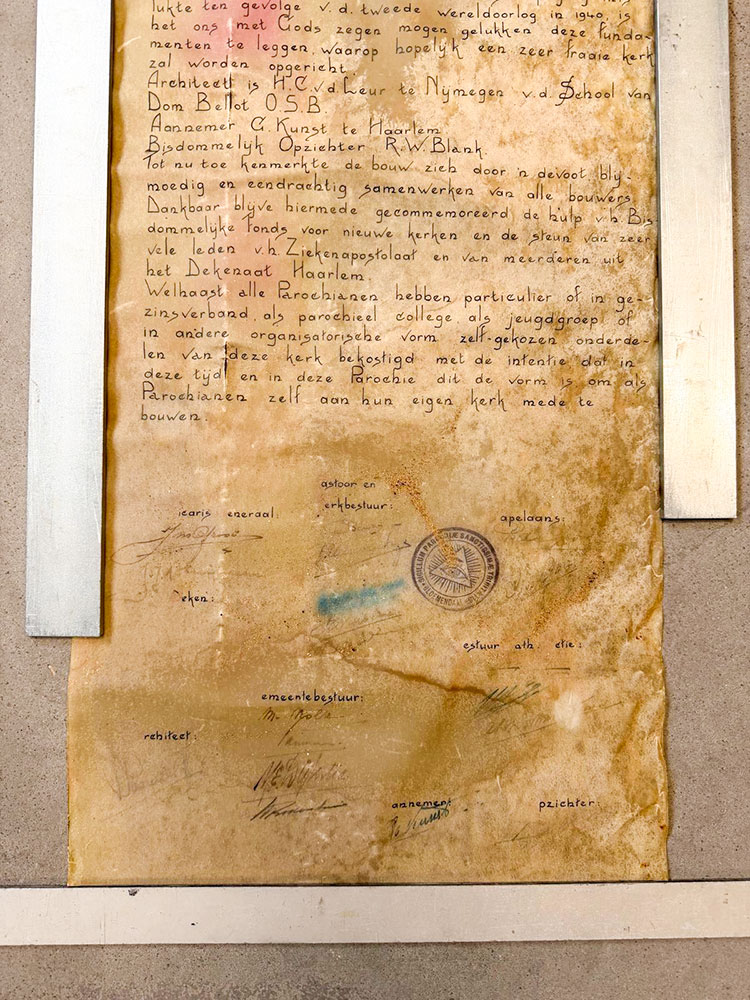 lukte ten gevolge v.d. tweede wereldoorlog in 1940, is
het ons met Gods zegen mogen gelukken deze funda-
menten te leggen, waarop hopelijk een zeer fraaie kerk
zal worden opgericht.
Architect is H.C. v.d. Leur te Nymegen v.d. School van
Dom Bellot O.S.B.
Aannemer G. Kunst te Haarlem
Bisdommelyk Opzichter R.W. Blank.
Tot nu toe kenmerkte de bouw zich door 'n devoot, bly-
moedig en eendrachtig samenwerken van alle bouwers
Dankbaar blyve hiermede gecommemoreerd de hulp v.h. Bis
dommelyke fonds voor nieuwe kerken en de steun van zeer
vele leden v.h. Ziekenapostolaat en van meerderen uit
het Dekenaat Haarlem.
Welhaast alle Parochianen hebben particulier of in ge-
zinsverband, als parochieel college als jeugdgroep of
in andere organisatorische vorm zelf-gekozen onderde-
len van deze kerk bekostigd met de intentie dat in
deze tyd en in deze Parochie dit de vorm is om als
Parochianen zelf aan hun eigen kerk mede te
bouwen.
astoor en
icaris eneraal: erkbestuur: apelaans:
eken:
estuur ath. etie:
emeentebestuur:
rehiteet:
annement pzichter: